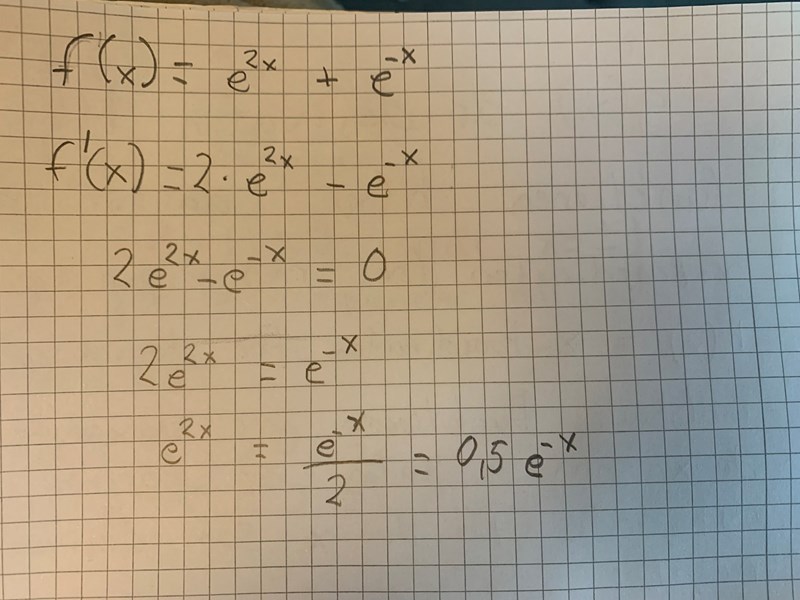 f(x) = e^{2x} + e^{-x}
f'(x) = 2 · e^{2x} - e^{-x}
2e^{2x} - e^{-x} = 0
2e^{2x} = e^{-x}
e^{2x} = \frac{e^{-x}}{2} = 0,5 e^{-x}